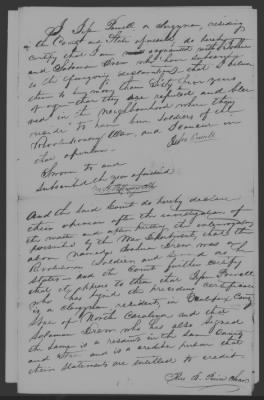 I Tifa Powell a clergyman residing
in the County and State aforesaid do hereby
certify that I am acquainted with Joshua
and Solomon Drew who have subscribed
to the foregoing declaration that I believe
them to be more than Sixty four years
of age that they are reputed and believ
ed in the neighborhood where they
reside to have been Soldiers of the
Revolutionary War, and I concur in
that opinion.
Powell
Sworn to and
Subscribed the year aforesaid
And the Said Court do hereby declare
their opinion after the investigation of
the matter and after putting the interrogatories
prescribed by the War Department, that the
above named Drew was a
Revolutionary Soldier and served as he
States and the Court further certify
that it appears to them that Powell
who has signed the preceding certificate
is a clergyman resident in County
State of North Carolina and that
Solomon Drew who has also signed
the same is a resident in the same County
and State and is a credible person that
their statements are entitled to credit.